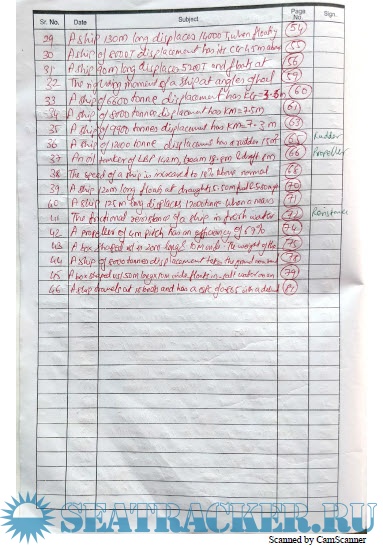 Sr. No. Date Subject Page No Sign.
29 A ship 130m long displaces 14000 T, when floating 54
30 A ship of 8000T displacement has its CG 4.5m above 55
31 A ship 90m long displaces 5200T and floats at 56
32 The righting moment of a ship at angles of heel 59
33 A ship of 6600 tonne displacement has CG 3.6m 60
34 A ship of 8000 tonne displacement has KM=7.5m 61
35 A ship of 9900 tonnes displacement has KM=7.3m 63
36 A ship of 12000 tonne displacement has a rudder 15m² 65 Rudder
37 An oil tanker of LBP 142m, beam 18.8m & draft 8m 66 Propeller
38 The speed of a ship is increased to 18% above normal 68
39 A ship 120m long floats at draughts 5.50m fwd & 5.80m aft 70
40 A ship 125m long displaces 12000 tonne when a mass 71
41 The frictional resistance of a ship in fresh water 72 Resistance
42 A propeller of 4m pitch has an efficiency of 67% 74
43 A box shaped long & wide. The weight of the 75
44 A ship of 8000 tonnes displacement takes the ground 78
45 A box shaped vsl 50m long x 10m wide, floats in salt water on an 79
46 A ship travels at 16 knots and has a with a 81
SEATRACKER.RU
Scanned by CamScanner